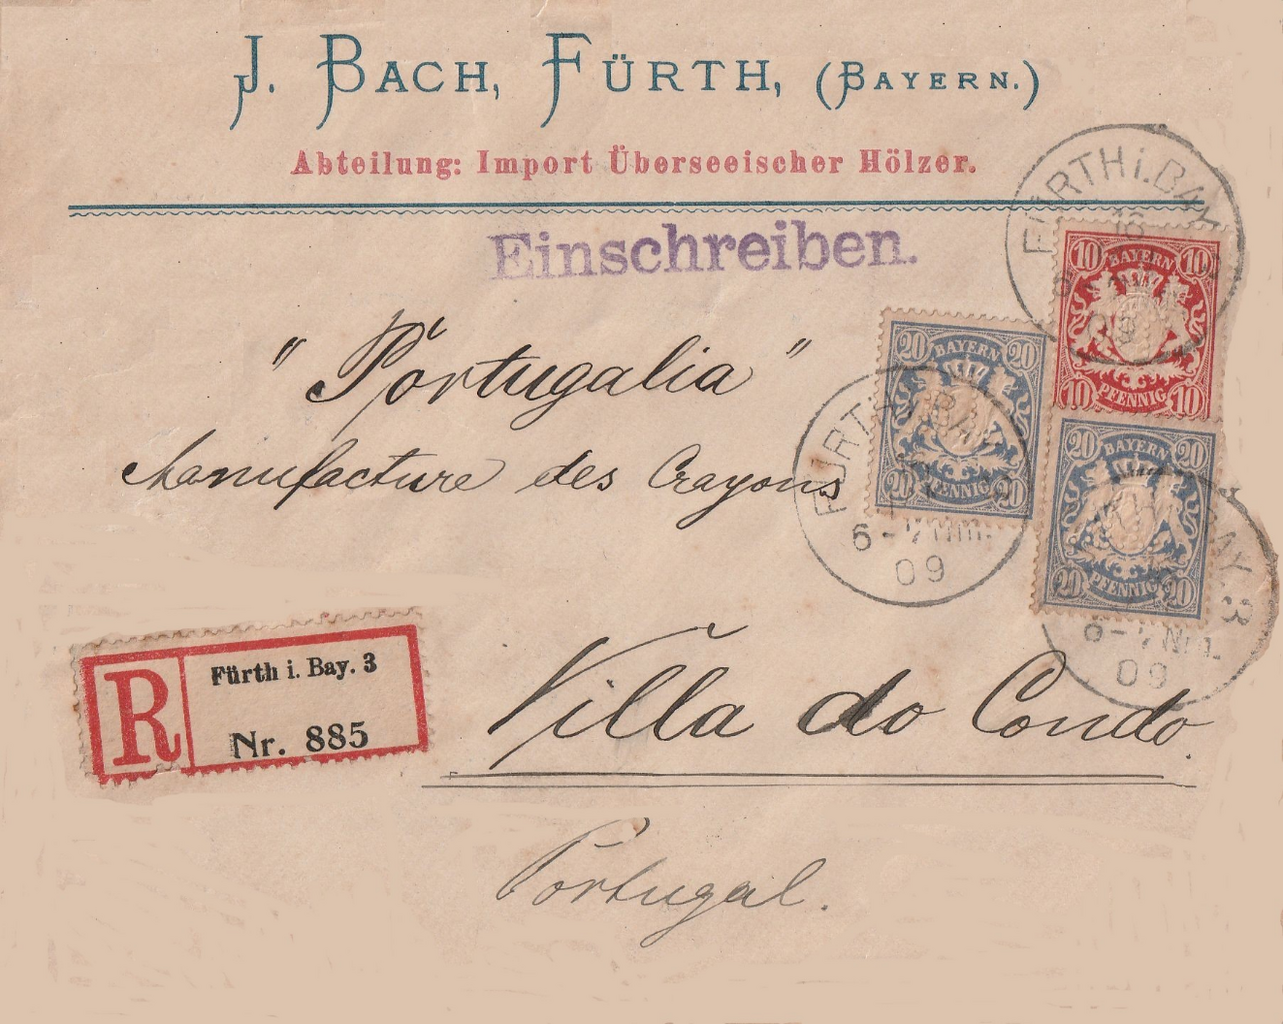 J. BACH, FÜRTH, (BAYERN.)
Abteilung: Import Überseeischer Hölzer.
Einschreiben.
"Portugalia"
Manufacture des Crayons
Villa do Condo.
Portugal.
R
Fürth i. Bay. 3
Nr. 885
FÜRTH i. BAY
10 BAYERN 10
10 PFENNIG 10
20 BAYERN 20
20 PFENNIG 20
FÜRTH BAY
6-7 Nm.
09
20 BAYERN 20
20 PFENNIG 20
BAY. 3
6-7 Nm.
09